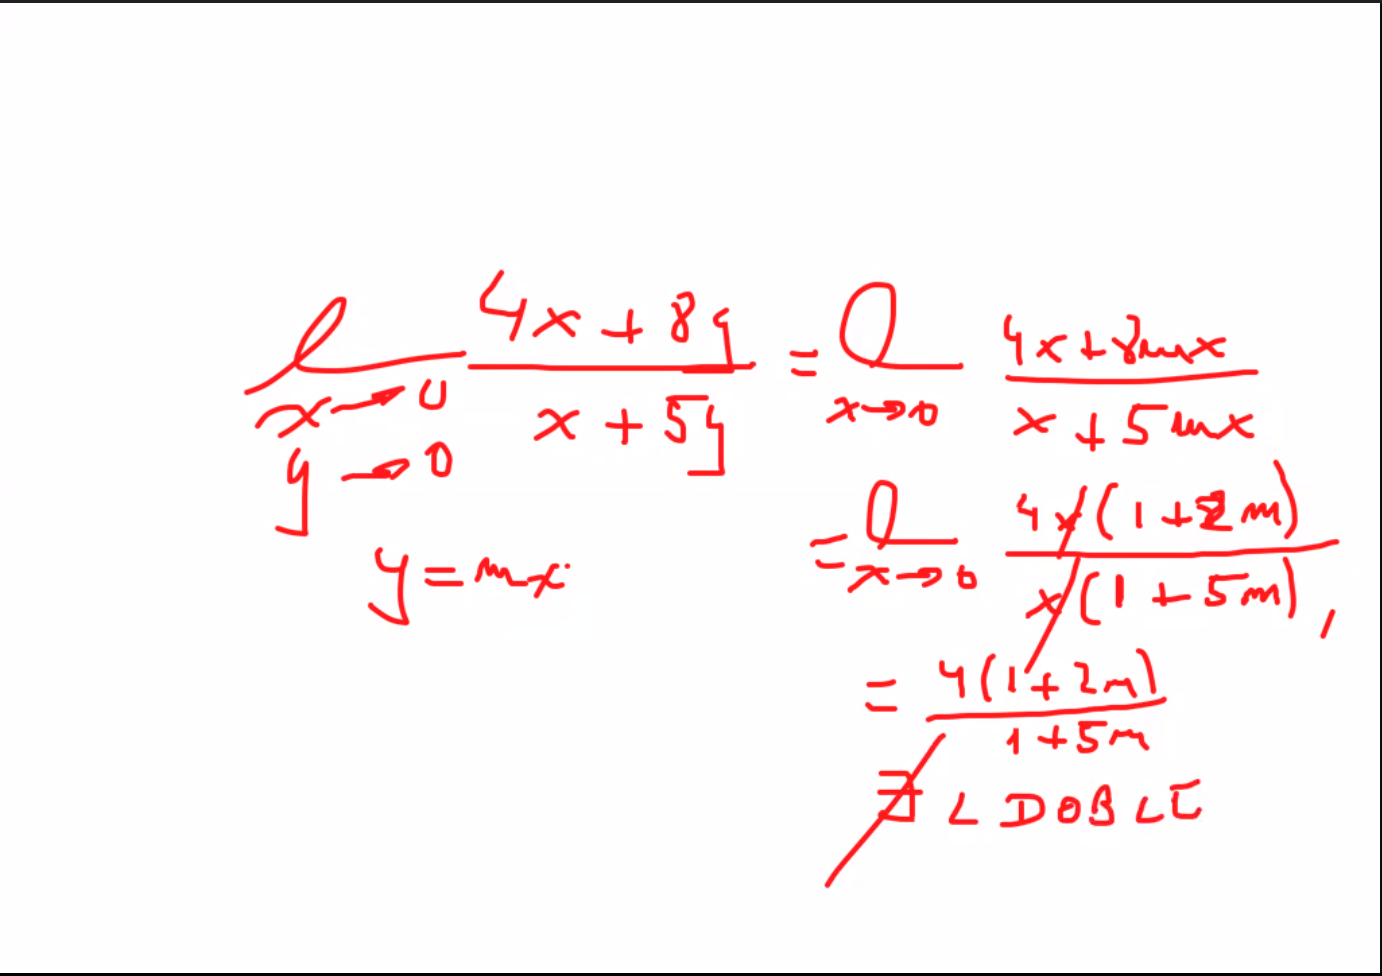 l x→0 y→0 (4x + 8y)/(x + 5y) = l x→0 (4x + 8mx)/(x + 5mx)
y = mx
= l x→0 4x(1 + 2m)/x(1 + 5m),
= 4(1 + 2m)/(1 + 5m)
∄ L DOBLE